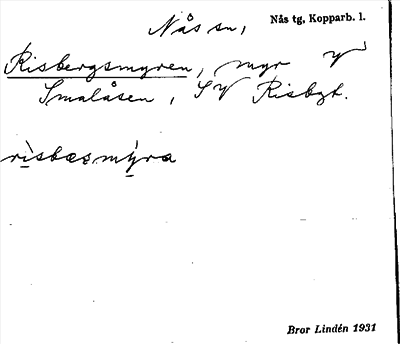 Nås sn,
Nås tg, Kopparb. l.
Risbergsmyren, myr V
Smalåsen, SV Risbgt.
rìsbæsmýra
Bror Lindén 1931